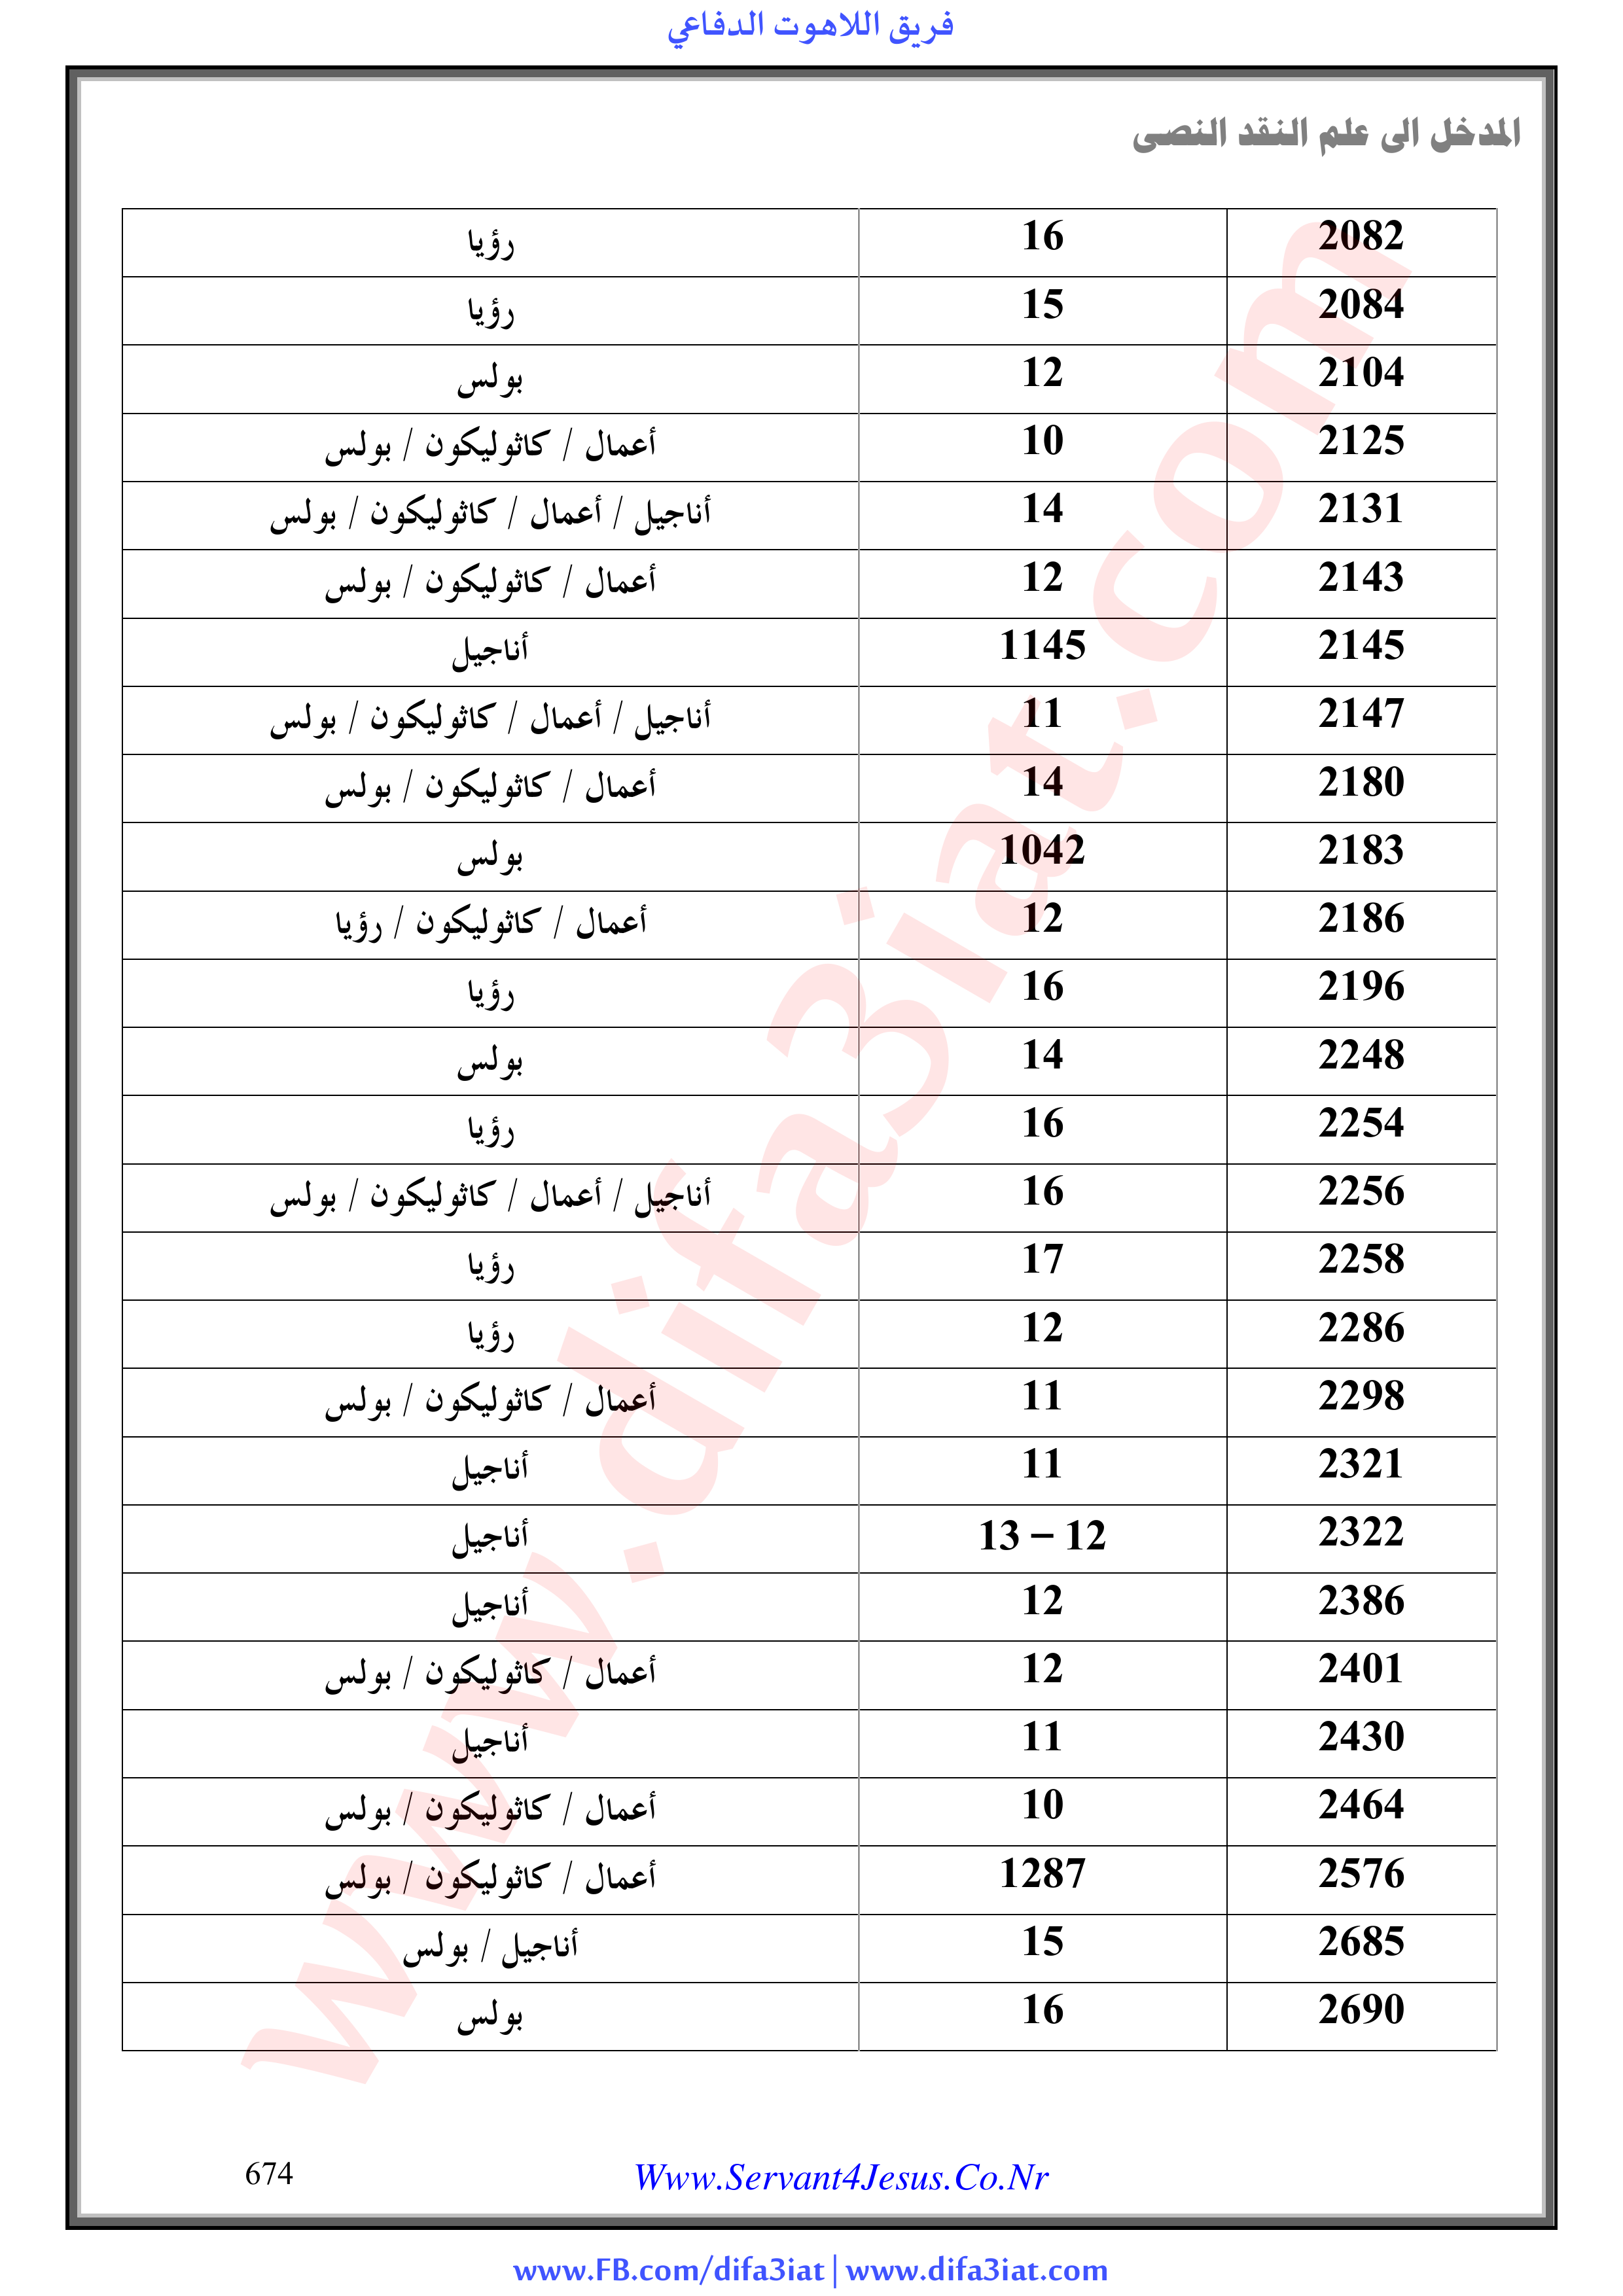 فريق اللاهوت الدفاعي
المدخل الى علم النقد النصى
2082 16 رؤيا
2084 15 رؤيا
2104 12 بولس
2125 10 أعمال / كاثوليكون / بولس
2131 14 أناجيل / أعمال / كاثوليكون / بولس
2143 12 أعمال / كاثوليكون / بولس
2145 1145 أناجيل
2147 11 أناجيل / أعمال / كاثوليكون / بولس
2180 14 أعمال / كاثوليكون / بولس
2183 1042 بولس
2186 12 أعمال / كاثوليكون / رؤيا
2196 16 رؤيا
2248 14 بولس
2254 16 رؤيا
2256 16 أناجيل / أعمال / كاثوليكون / بولس
2258 17 رؤيا
2286 12 رؤيا
2298 11 أعمال / كاثوليكون / بولس
2321 11 أناجيل
2322 12 – 13 أناجيل
2386 12 أناجيل
2401 12 أعمال / كاثوليكون / بولس
2430 11 أناجيل
2464 10 أعمال / كاثوليكون / بولس
2576 1287 أعمال / كاثوليكون / بولس
2685 15 أناجيل / بولس
2690 16 بولس
www.difa3iat.com
674 Www.Servant4Jesus.Co.Nr
www.FB.com/difa3iat | www.difa3iat.com